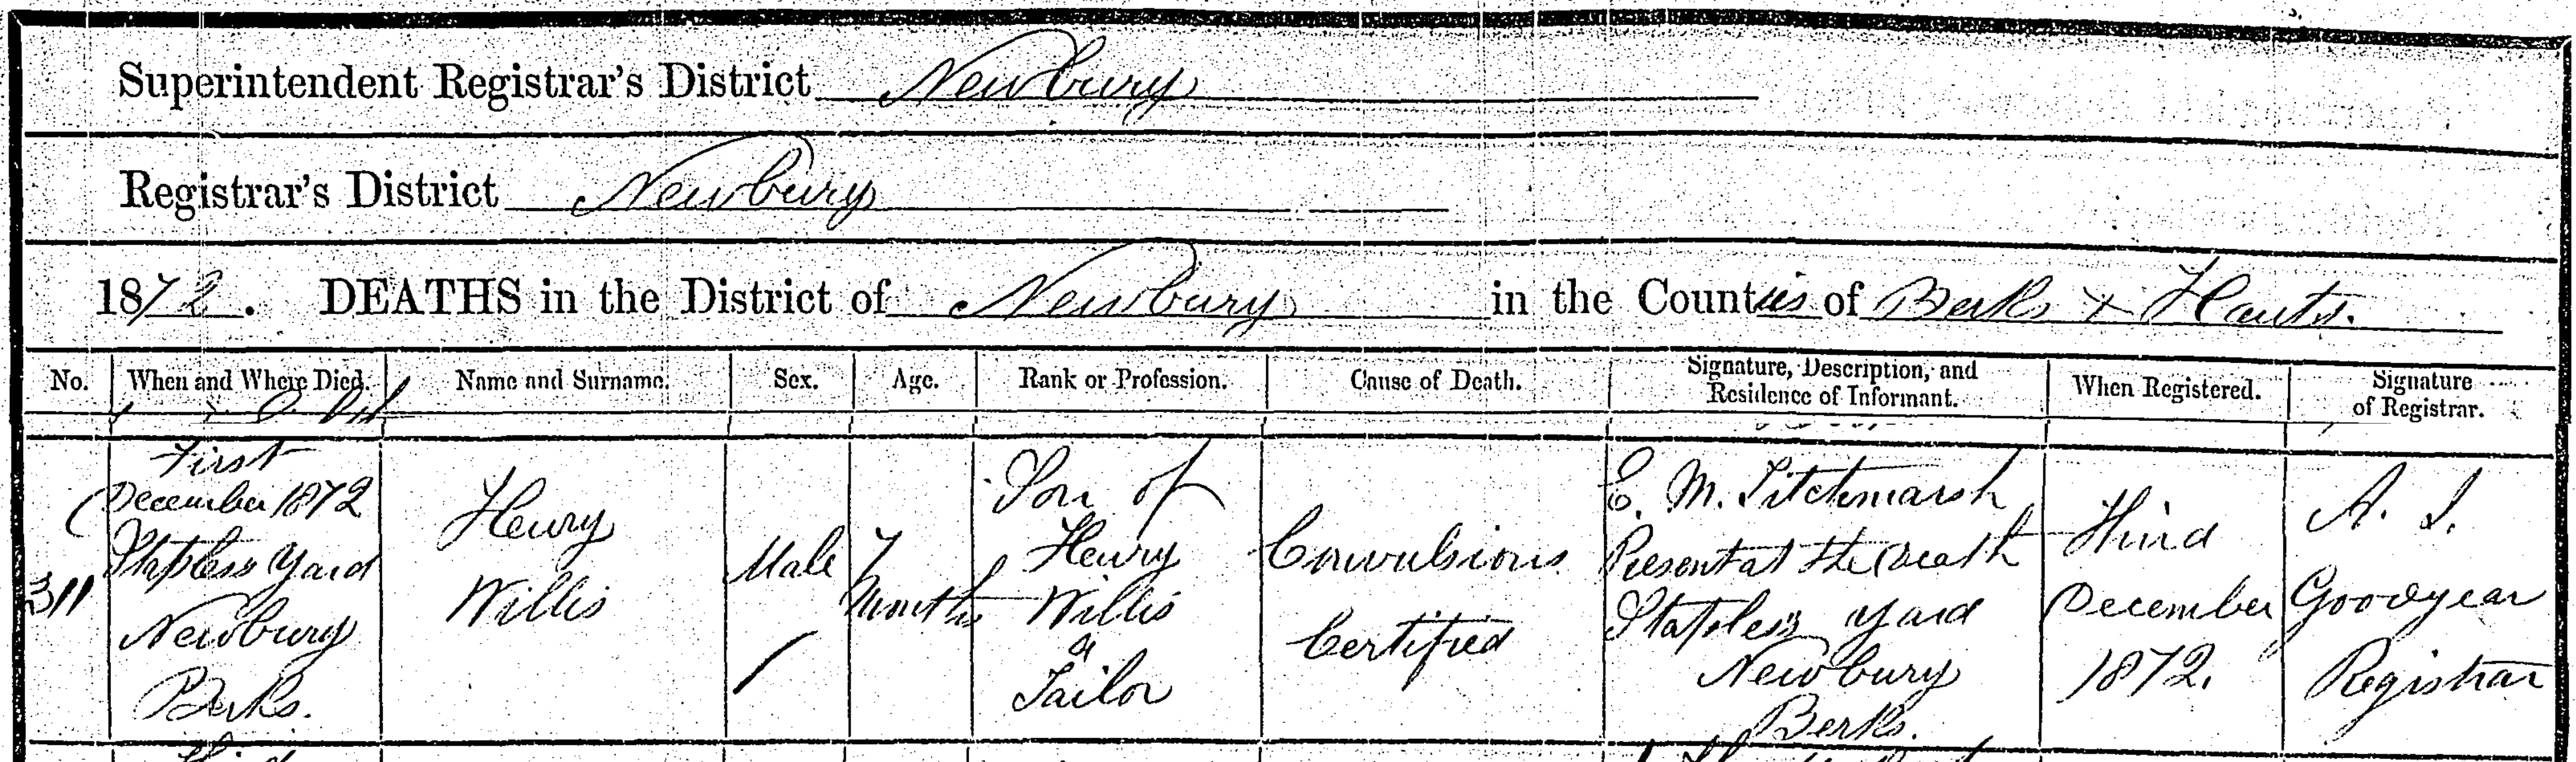 Superintendent Registrar's District Newbury
Registrar's District Newbury
1872. DEATHS in the District of Newbury in the Counties of Berks & Hants.
No. When and Where Died. Name and Surname. Sex. Age. Rank or Profession. Cause of Death. Signature, Description, and Residence of Informant. When Registered. Signature of Registrar.
311
First
December 1872
Staples's Yard
Newbury
Berks.
Henry
Willis
Male
7
Months
Son of
Henry
Willis
a
Tailor
Convulsions
Certified
E. M. Titchmarsh
Present at the Death
Staples's Yard
Newbury
Berks.
Third
December
1872.
A. I.
Goodyear
Registrar